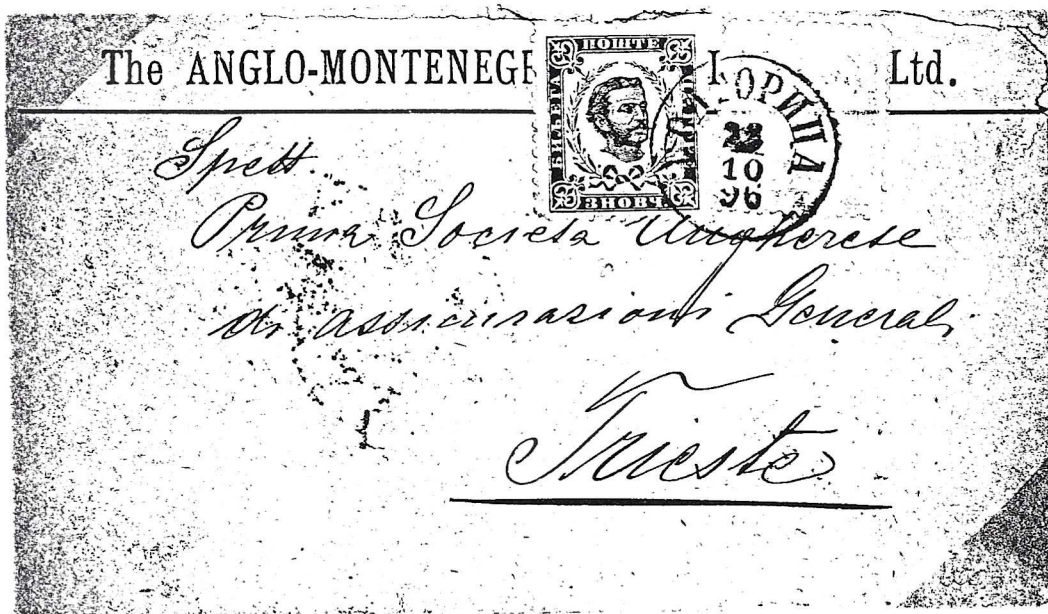 The ANGLO-MONTENEGR Ltd.
ПОШТЕ
ЗНОВЧ.
ОРИЦА
10
96
Spett.
Prima Societa Ungherese
di assicurazioni Generali
Trieste